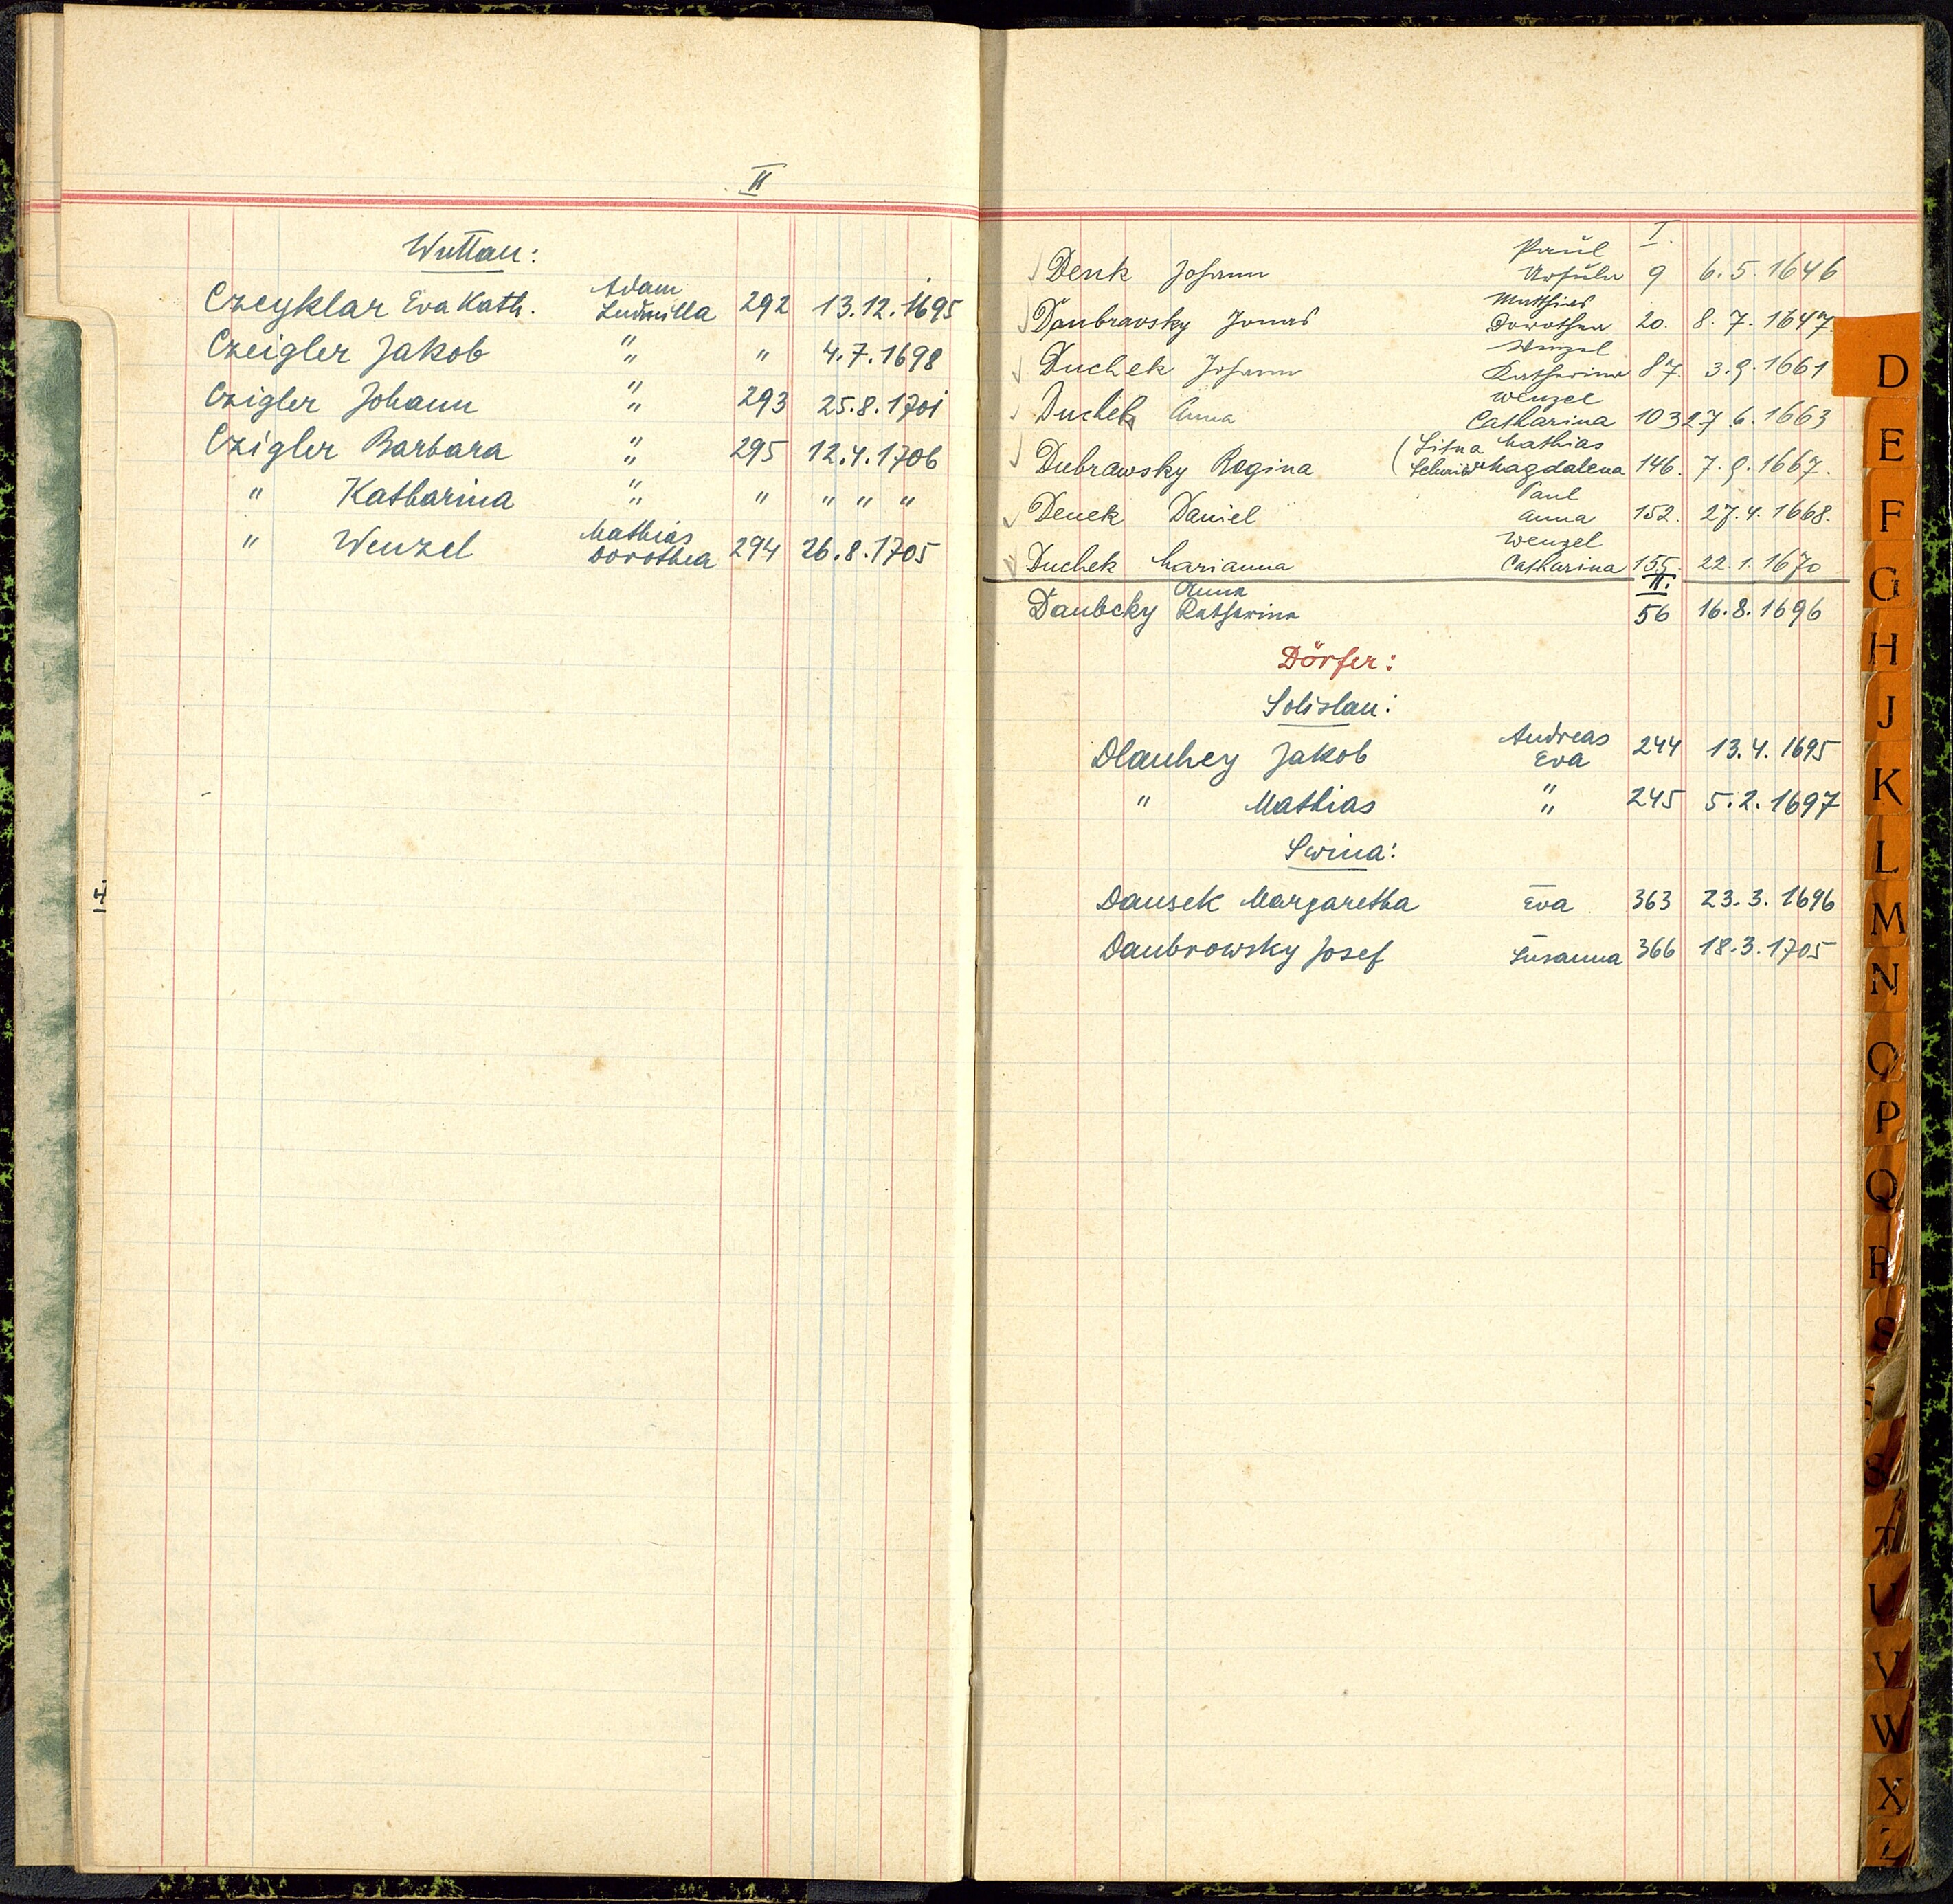 II
Wuttau:
Adam
Czeyklar Eva Kath. Ludmilla 292 13.12.1695
Czeigler Jakob " " " 4.7.1698
Czigler Johann " " 293 25.8.1701
Czigler Barbara " " 295 12.4.1706
" Katharina " " " " " "
Mathias
" Wenzel Dorothea 294 26.8.1705
4
I.
Paul
Denk Johann Ursula 9 6.5.1646
Matthias
Daubravsky Jonas Dorothea 20. 8.7.1647.
Wenzel
Duchek Johann Katharina 87. 3.9.1661
Wenzel
Duchek Anna Catharina 103 27.6.1663
(Litna Mathias
Dubrawsky Regina (Magdalena 146. 7.9.1667.
Paul
Denek Daniel Anna 152. 27.4.1668.
Wenzel
Duchek Marianna Catharina 155. 22.1.1670
II.
Anna
Daubcky Katharina 56 16.8.1696
Dörfer:
Solislau:
Andreas
Dlauhey Jakob Eva 244 13.4.1695
" Mathias " " 245 5.2.1697
Swina:
Dausek Margaretha — Eva 363 23.3.1696
Daubrowsky Josef — Susanna 366 18.3.1705
D
E
F
G
H
J
K
L
M
N
O
P
Q
R
S
S
T
U
V
W
X
Z